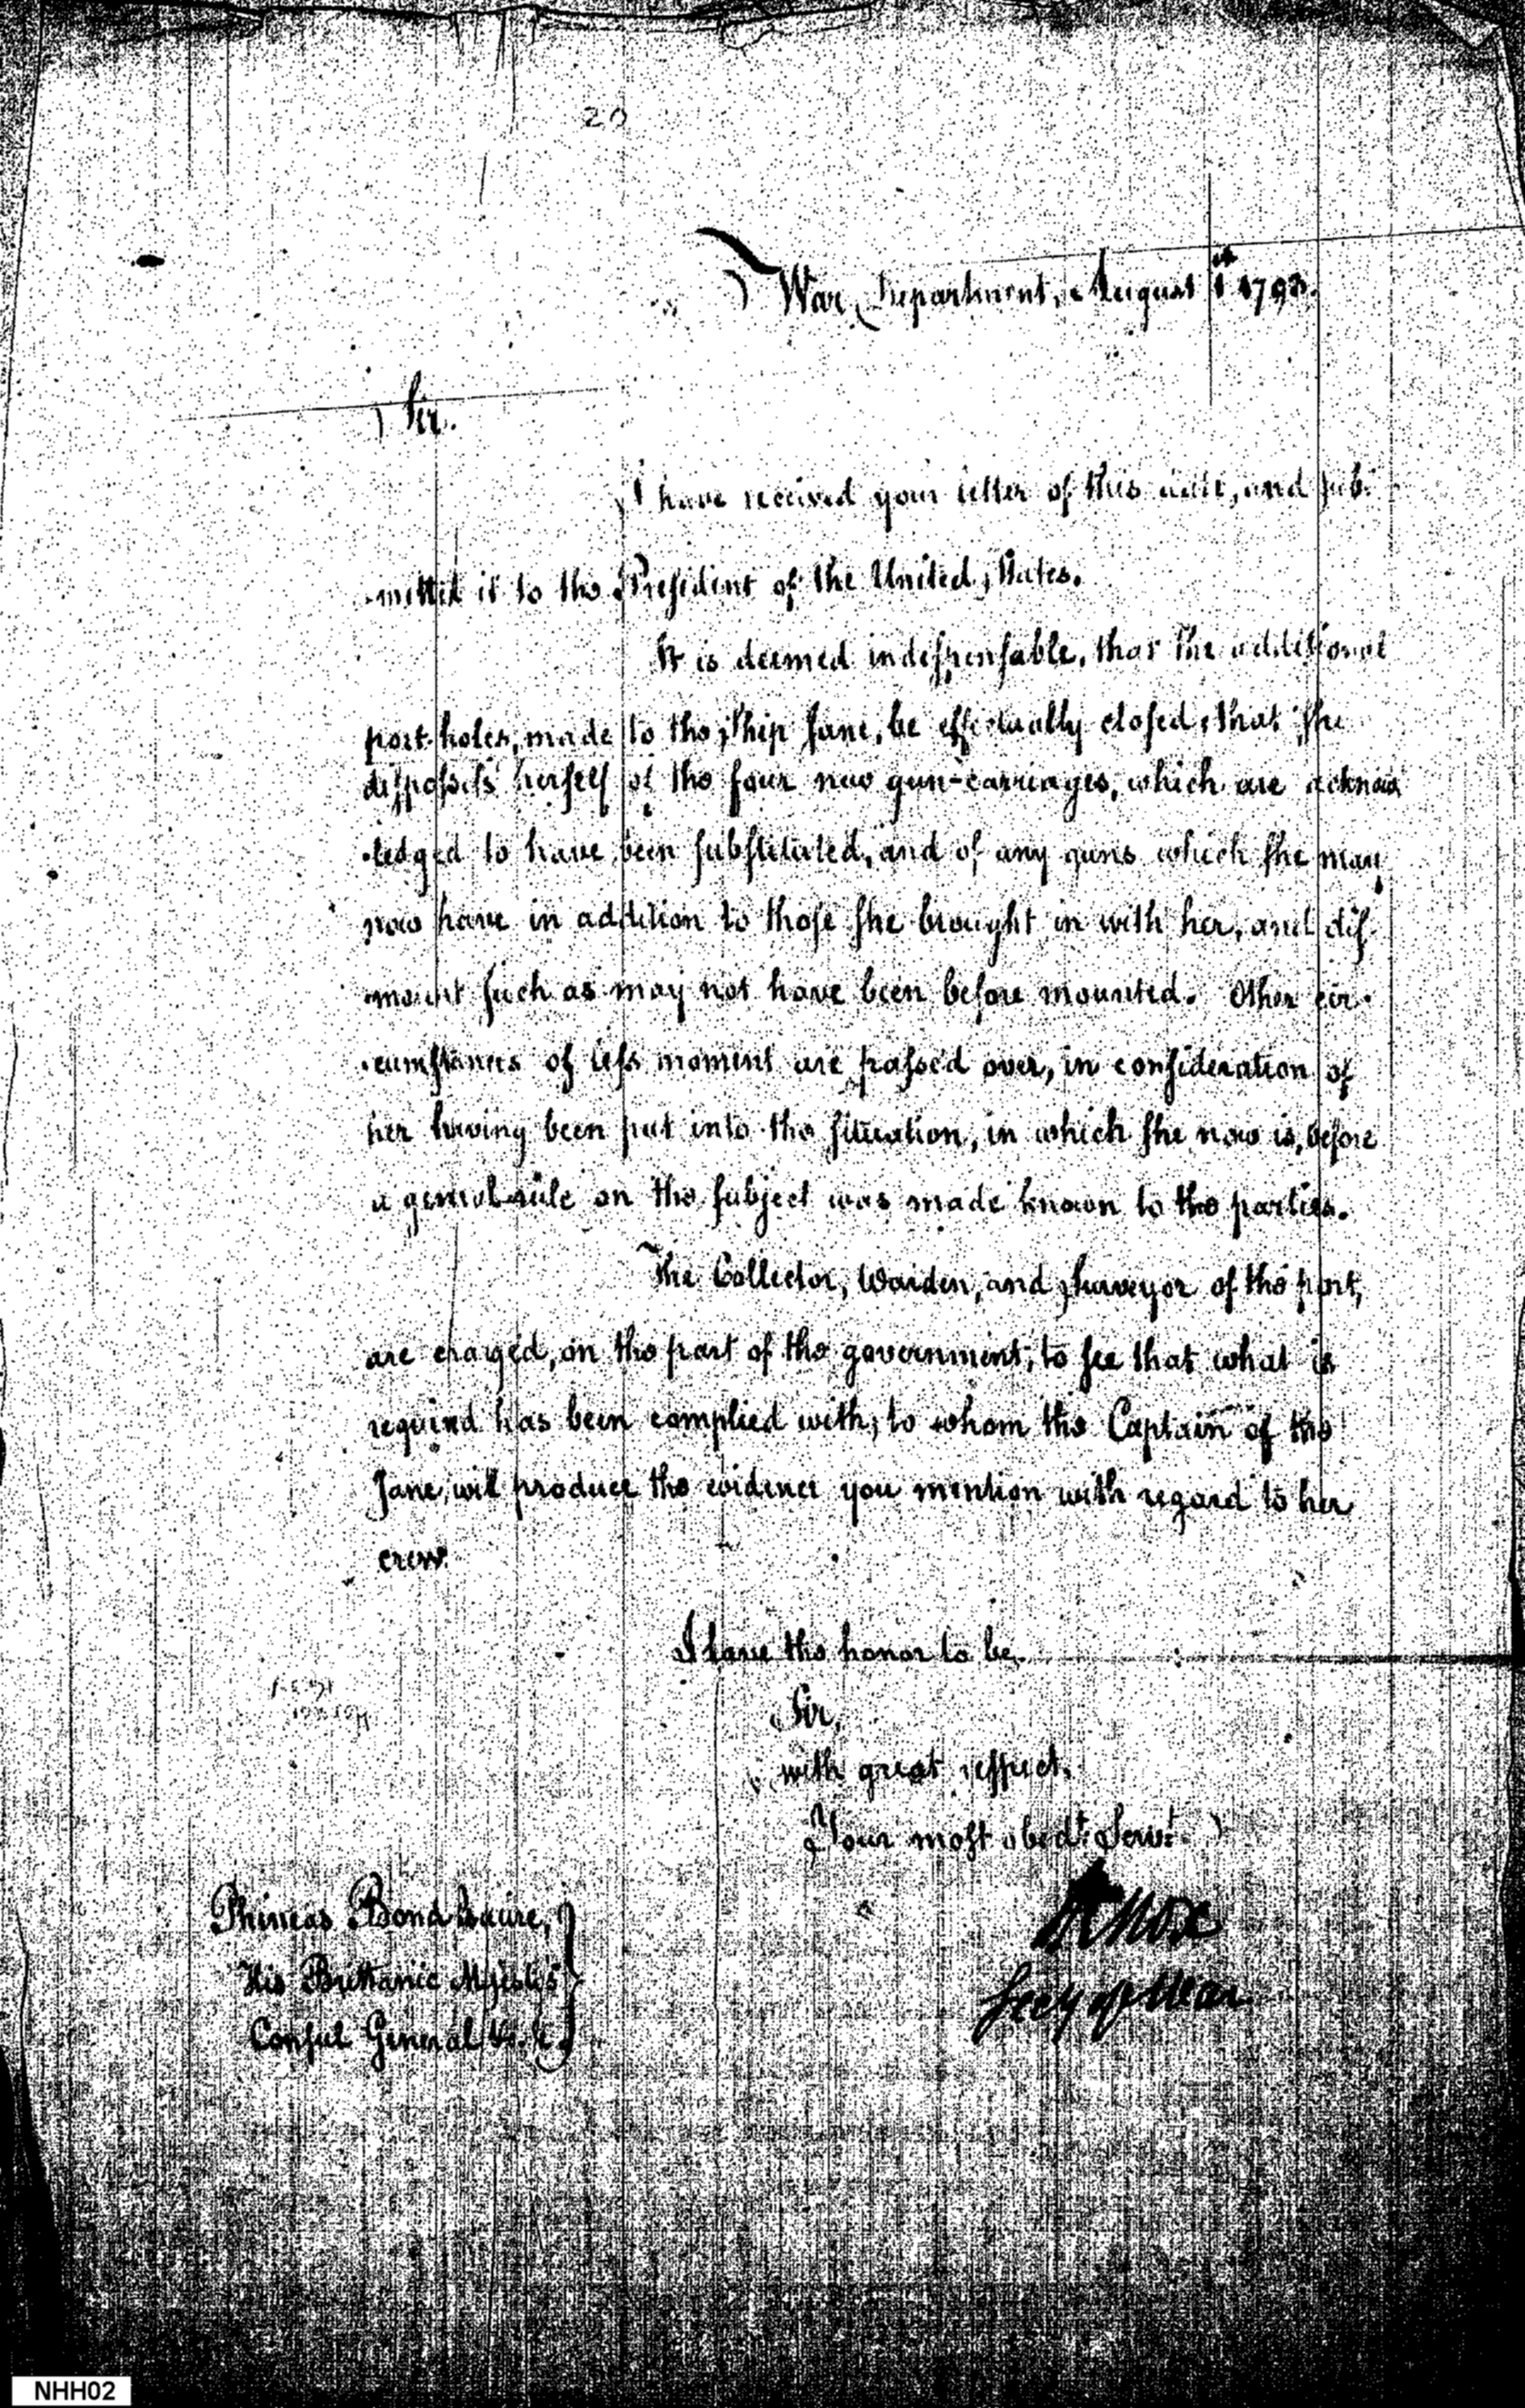 20
War Department, August 1st 1793.
Sir.
I have received your letter of this date, and sub-
-mitted it to the President of the United States.
It is deemed indispensable, that the additional
port-holes, made to the Ship Jane, be effectually closed, that she
dispossess herself of the four new gun-carriages, which are acknow
-ledged to have been substituted, and of any guns which she may
now have in addition to those she brought in with her, and dis-
-mount such as may not have been before mounted. Other cir-
-cumstances of less moment are passed over, in consideration of
her having been put into the situation, in which she now is, before
a general rule on the subject was made known to the parties.
The Collector, Warden, and Surveyor of the port,
are charged, on the part of the government, to see that what is
required has been complied with; to whom the Captain of the
Jane, will produce the evidence you mention with regard to her
crew.
I have the honor to be,
Sir,
with great respect,
Your most obedt. Servt.
HKnox
Secy of War
Phineas Bond Esquire,
His Brittanic Majestys
Consul General &c. &c.
NHH02